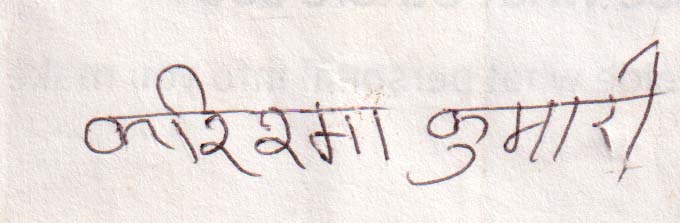 करिश्मा कुमारी